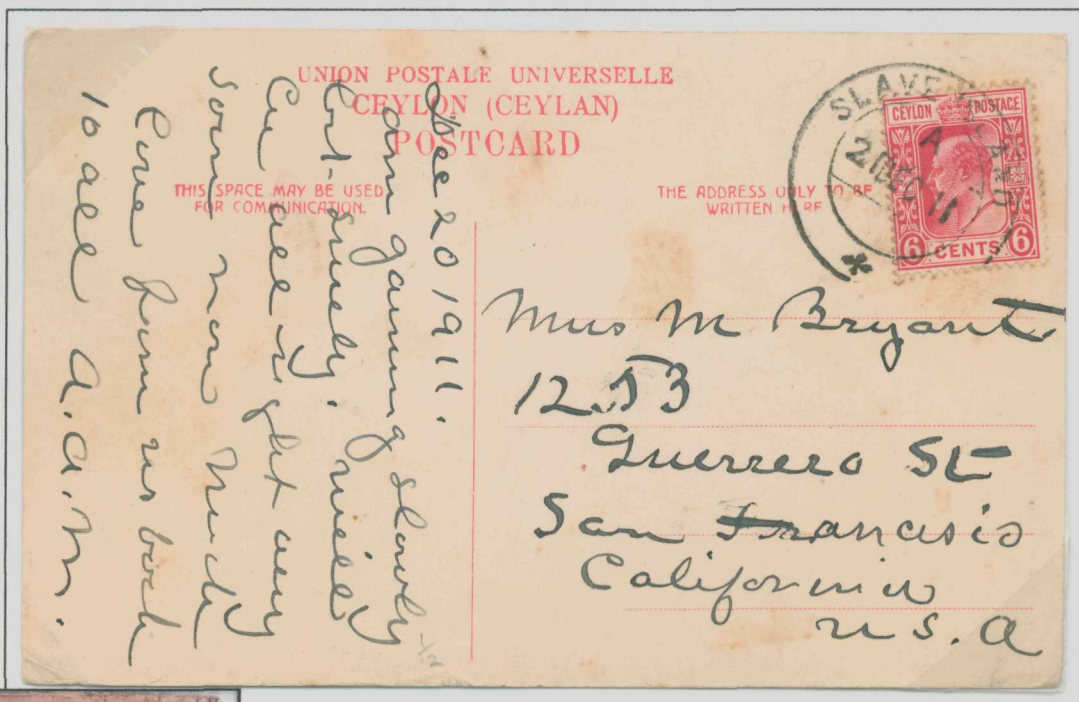 UNION POSTALE UNIVERSELLE
CEYLON (CEYLAN)
POSTCARD
THIS SPACE MAY BE USED
FOR COMMUNICATION.
THE ADDRESS ONLY TO BE
WRITTEN HERE
CEYLON POSTAGE
6 CENTS 6
SLAVE ISLAND
A
20 DE 11
Dec 20 1911.
am gaining slowly
but surely. Will
be all right very
soon now
Love from us both
to all A.A.M.
Mrs M Bryant
1253
Guerrero St
San Francisio
California
U S. A